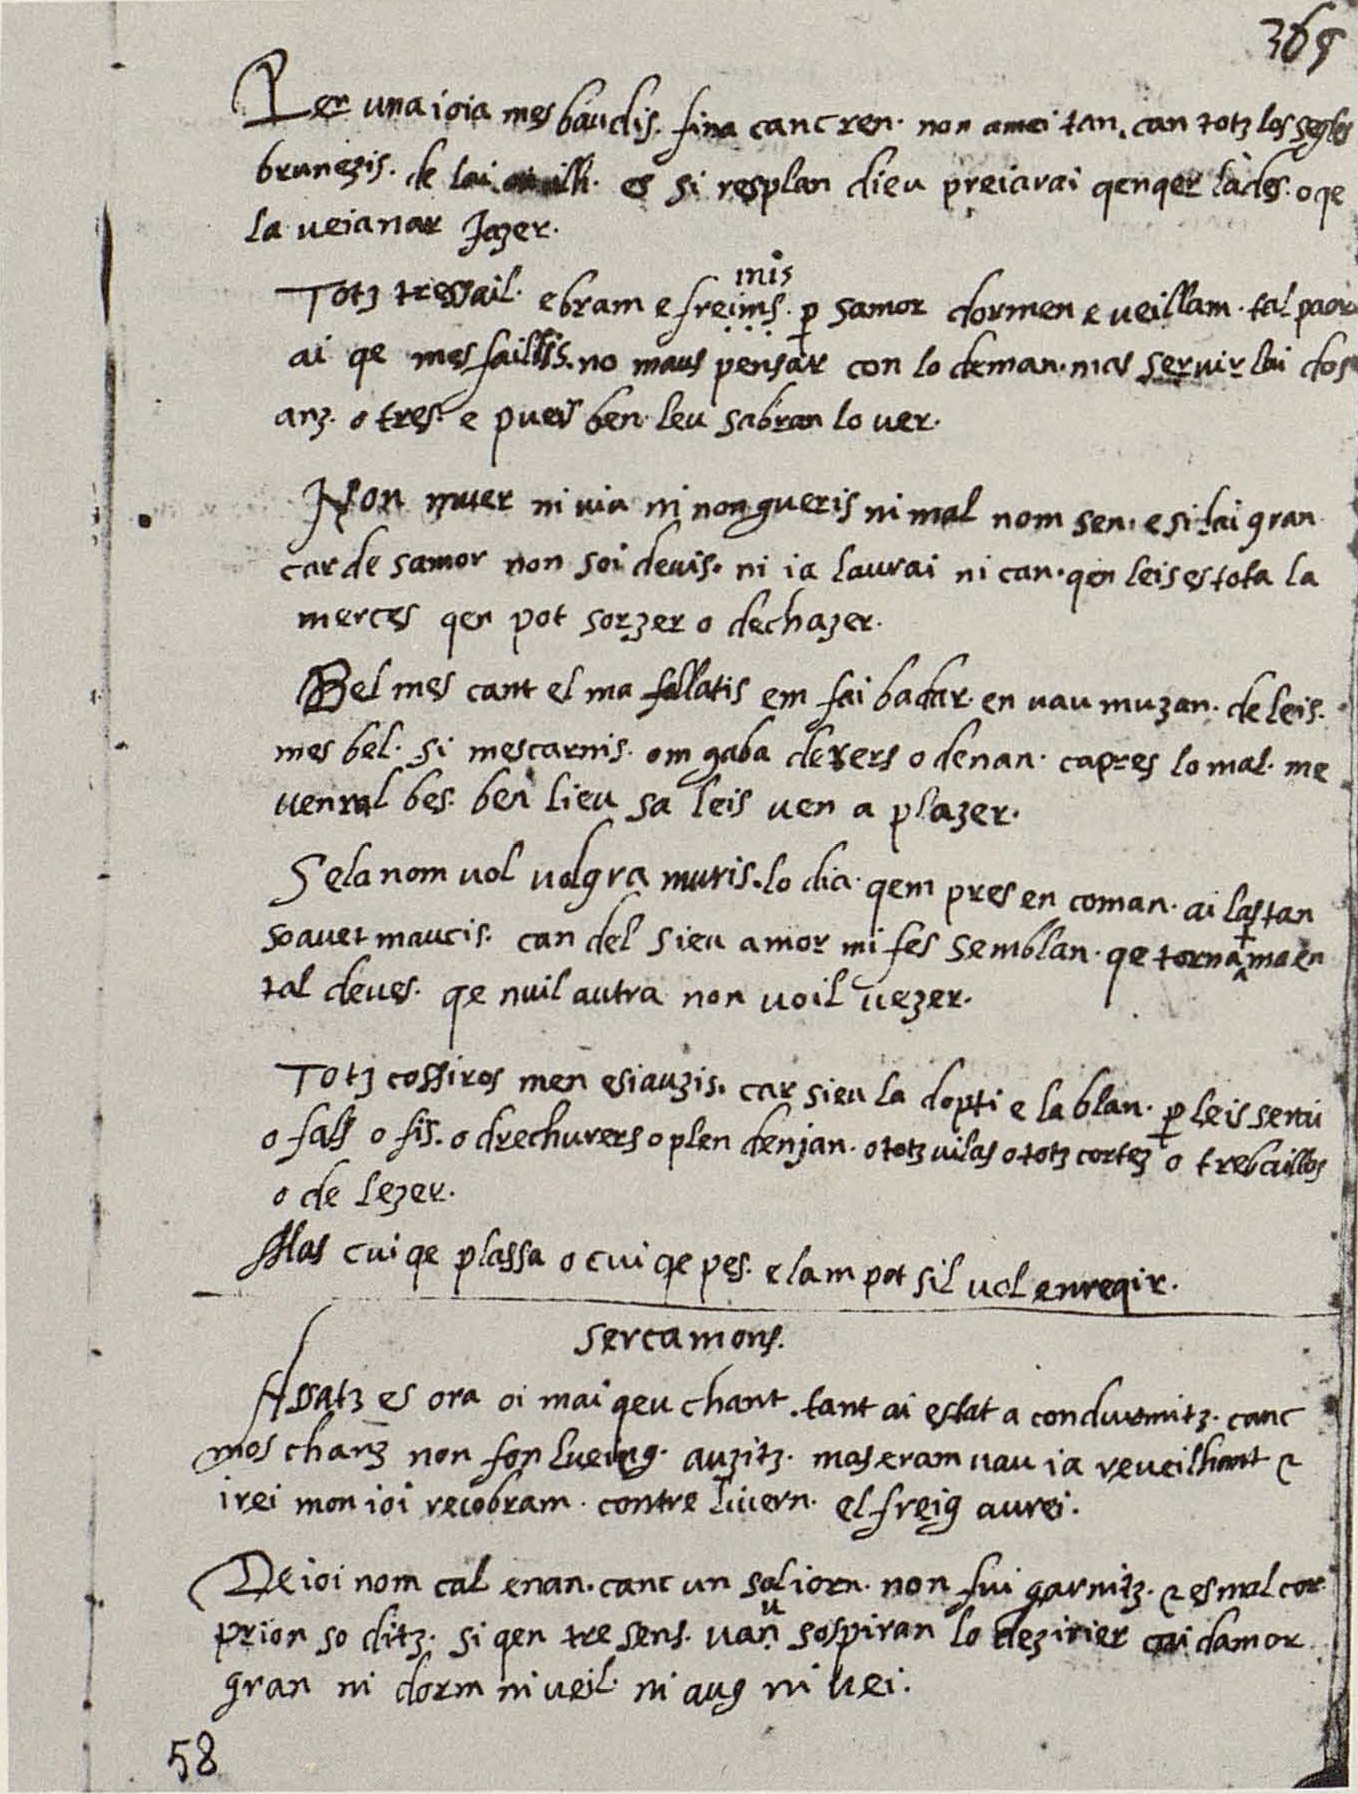 365
Per una ioia mes baudis. fina canc ren. non amei tan. can totz los segles
brunezis. de lai on ilh. es si resplan dieu preiarai qenqer lades. o qe
la veianar Jazer.
Totz tressail. e bram e freims. p samor dormen e veillam. tal paor
mis
ai qe mes faillis. no maus pensar con lo deman. mas servir lai dos
anz. o tres. e pueis ben leu sabran lo ver.
Non muer ni via ni non gueris ni mal nom sen. e si lai gran
car de samor non soi devis. ni ia laurai ni can. qen leis es tota la
merces qen pot sorzer o dechazer.
Bel mes cant el ma follatis em fai badar. en vau muzan. de leis.
mes bel. si mescarnis. om gaba derers o denan. capres lo mal. me
venral bes. ben lieu sa leis ven a plazer.
Sela nom vol volgra muris. lo dia. qem pres en coman. ai las tan
soavet maucis. can del sieu amor mi fes semblan. qe torna ma en
tal deves. qe nuil autra non voil vezer.
Totz cossiros men esiauzis. car sieu la dopti e la blan. p leis serai
o fals o fis. o drechurers o plen denjan. o totz vilas o totz cortez o trebaillos
o de lezer.
Mas cui qe plassa o cui qe pes. elam pot sil vol enreqir.
sercamons.
Assatz es ora oi mai qeu chant. tant ai estat a condurmitz. canc
mos chanz non fon lueing. auzitz. mas eram vau ia reveilhant &
irei mon ioi recobram. contre livern. el freig aurei.
De ioi nom cal enan. canc un sol iorn. non fui garnitz. & es mal cor
prion so ditz. si qen tre sens. van sospiran lo dezirier cai damor
u
gran ni dorm ni veil. ni aug ni vei.
58